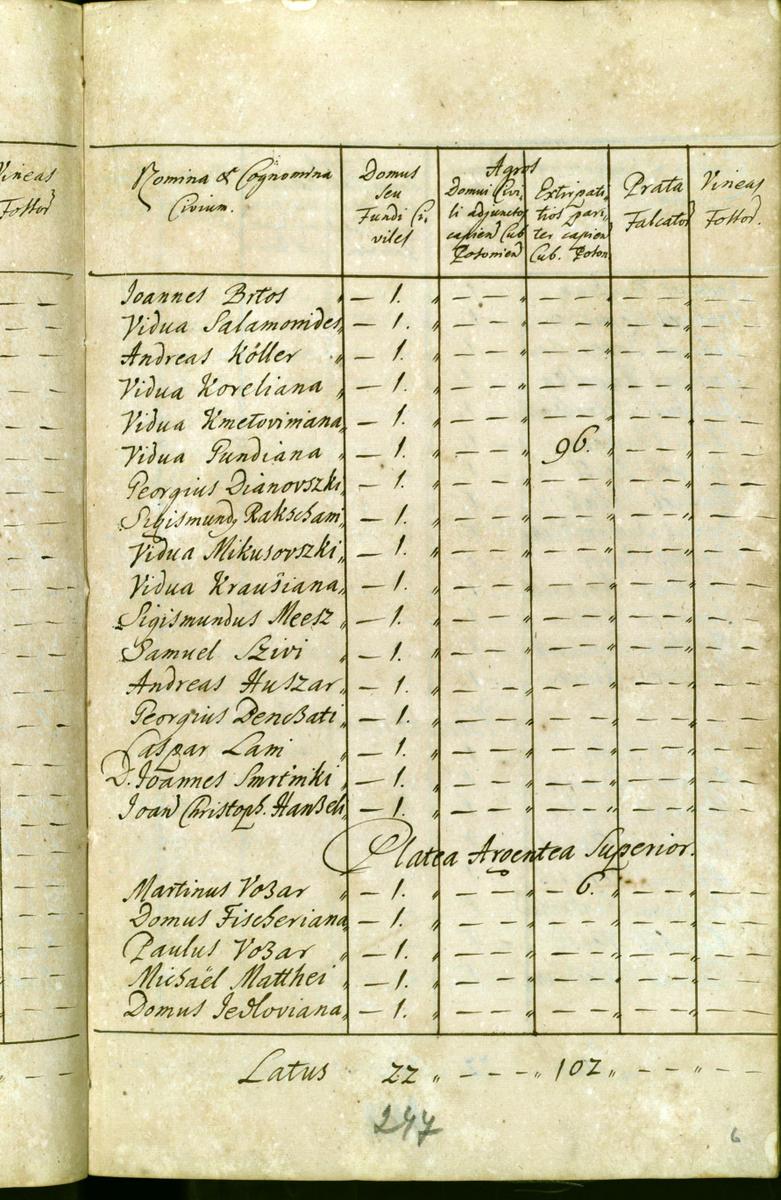 Vineas
Fossor
Nomina & Cognomina
Civium.
Domus
seu
Fundi Ci-
viles
Agros
Domui Civi-
li adjunctos
capien Cub
Posonien
Extirpati-
tios pari-
ter capien
Cub. Poson
Prata
Falcator
Vineas
Fossor.
Joannes Brtos " — 1. " — — — " — — — " — — " — —
Vidua Salamonides " — 1. " — — — " — — — " — — " — —
Andreas Köller " — 1. " — — — " — — — " — — " — —
Vidua Koreliana " — 1. " — — — " — — — " — — " — —
Vidua Kmetoviniana " — 1. " — — — " — — — " — — " — —
Vidua Gundiana " — 1. " — — — " 96. " — — " — —
Georgius Dianovszki " — 1. " — — — " — — — " — — " — —
Sigismund Rakschani " — 1. " — — — " — — — " — — " — —
Vidua Mikusovszki " — 1. " — — — " — — — " — — " — —
Vidua Krausiana " — 1. " — — — " — — — " — — " — —
Sigismundus Meesz " — 1. " — — — " — — — " — — " — —
Samuel Szivi " — 1. " — — — " — — — " — — " — —
Andreas Huszar " — 1. " — — — " — — — " — — " — —
Georgius Denczati " — 1. " — — — " — — — " — — " — —
Caspar Lani " — 1. " — — — " — — — " — — " — —
D. Joannes Smrtniki " — 1. " — — — " — — — " — — " — —
Joan Christoph. Hanzeli " — 1. " — — — " — — — " — — " — —
Platea Argentea Superior.
Martinus Vozar " — 1. " — — — " 6. " — — " — —
Domus Fischeriana " — 1. " — — — " — — — " — — " — —
Paulus Vozar " — 1. " — — — " — — — " — — " — —
Michaël Matthei " — 1. " — — — " — — — " — — " — —
Domus Jedloviana " — 1. " — — — " — — — " — — " — —
Latus 22 " — — — " 102 " — — " — —
247
6